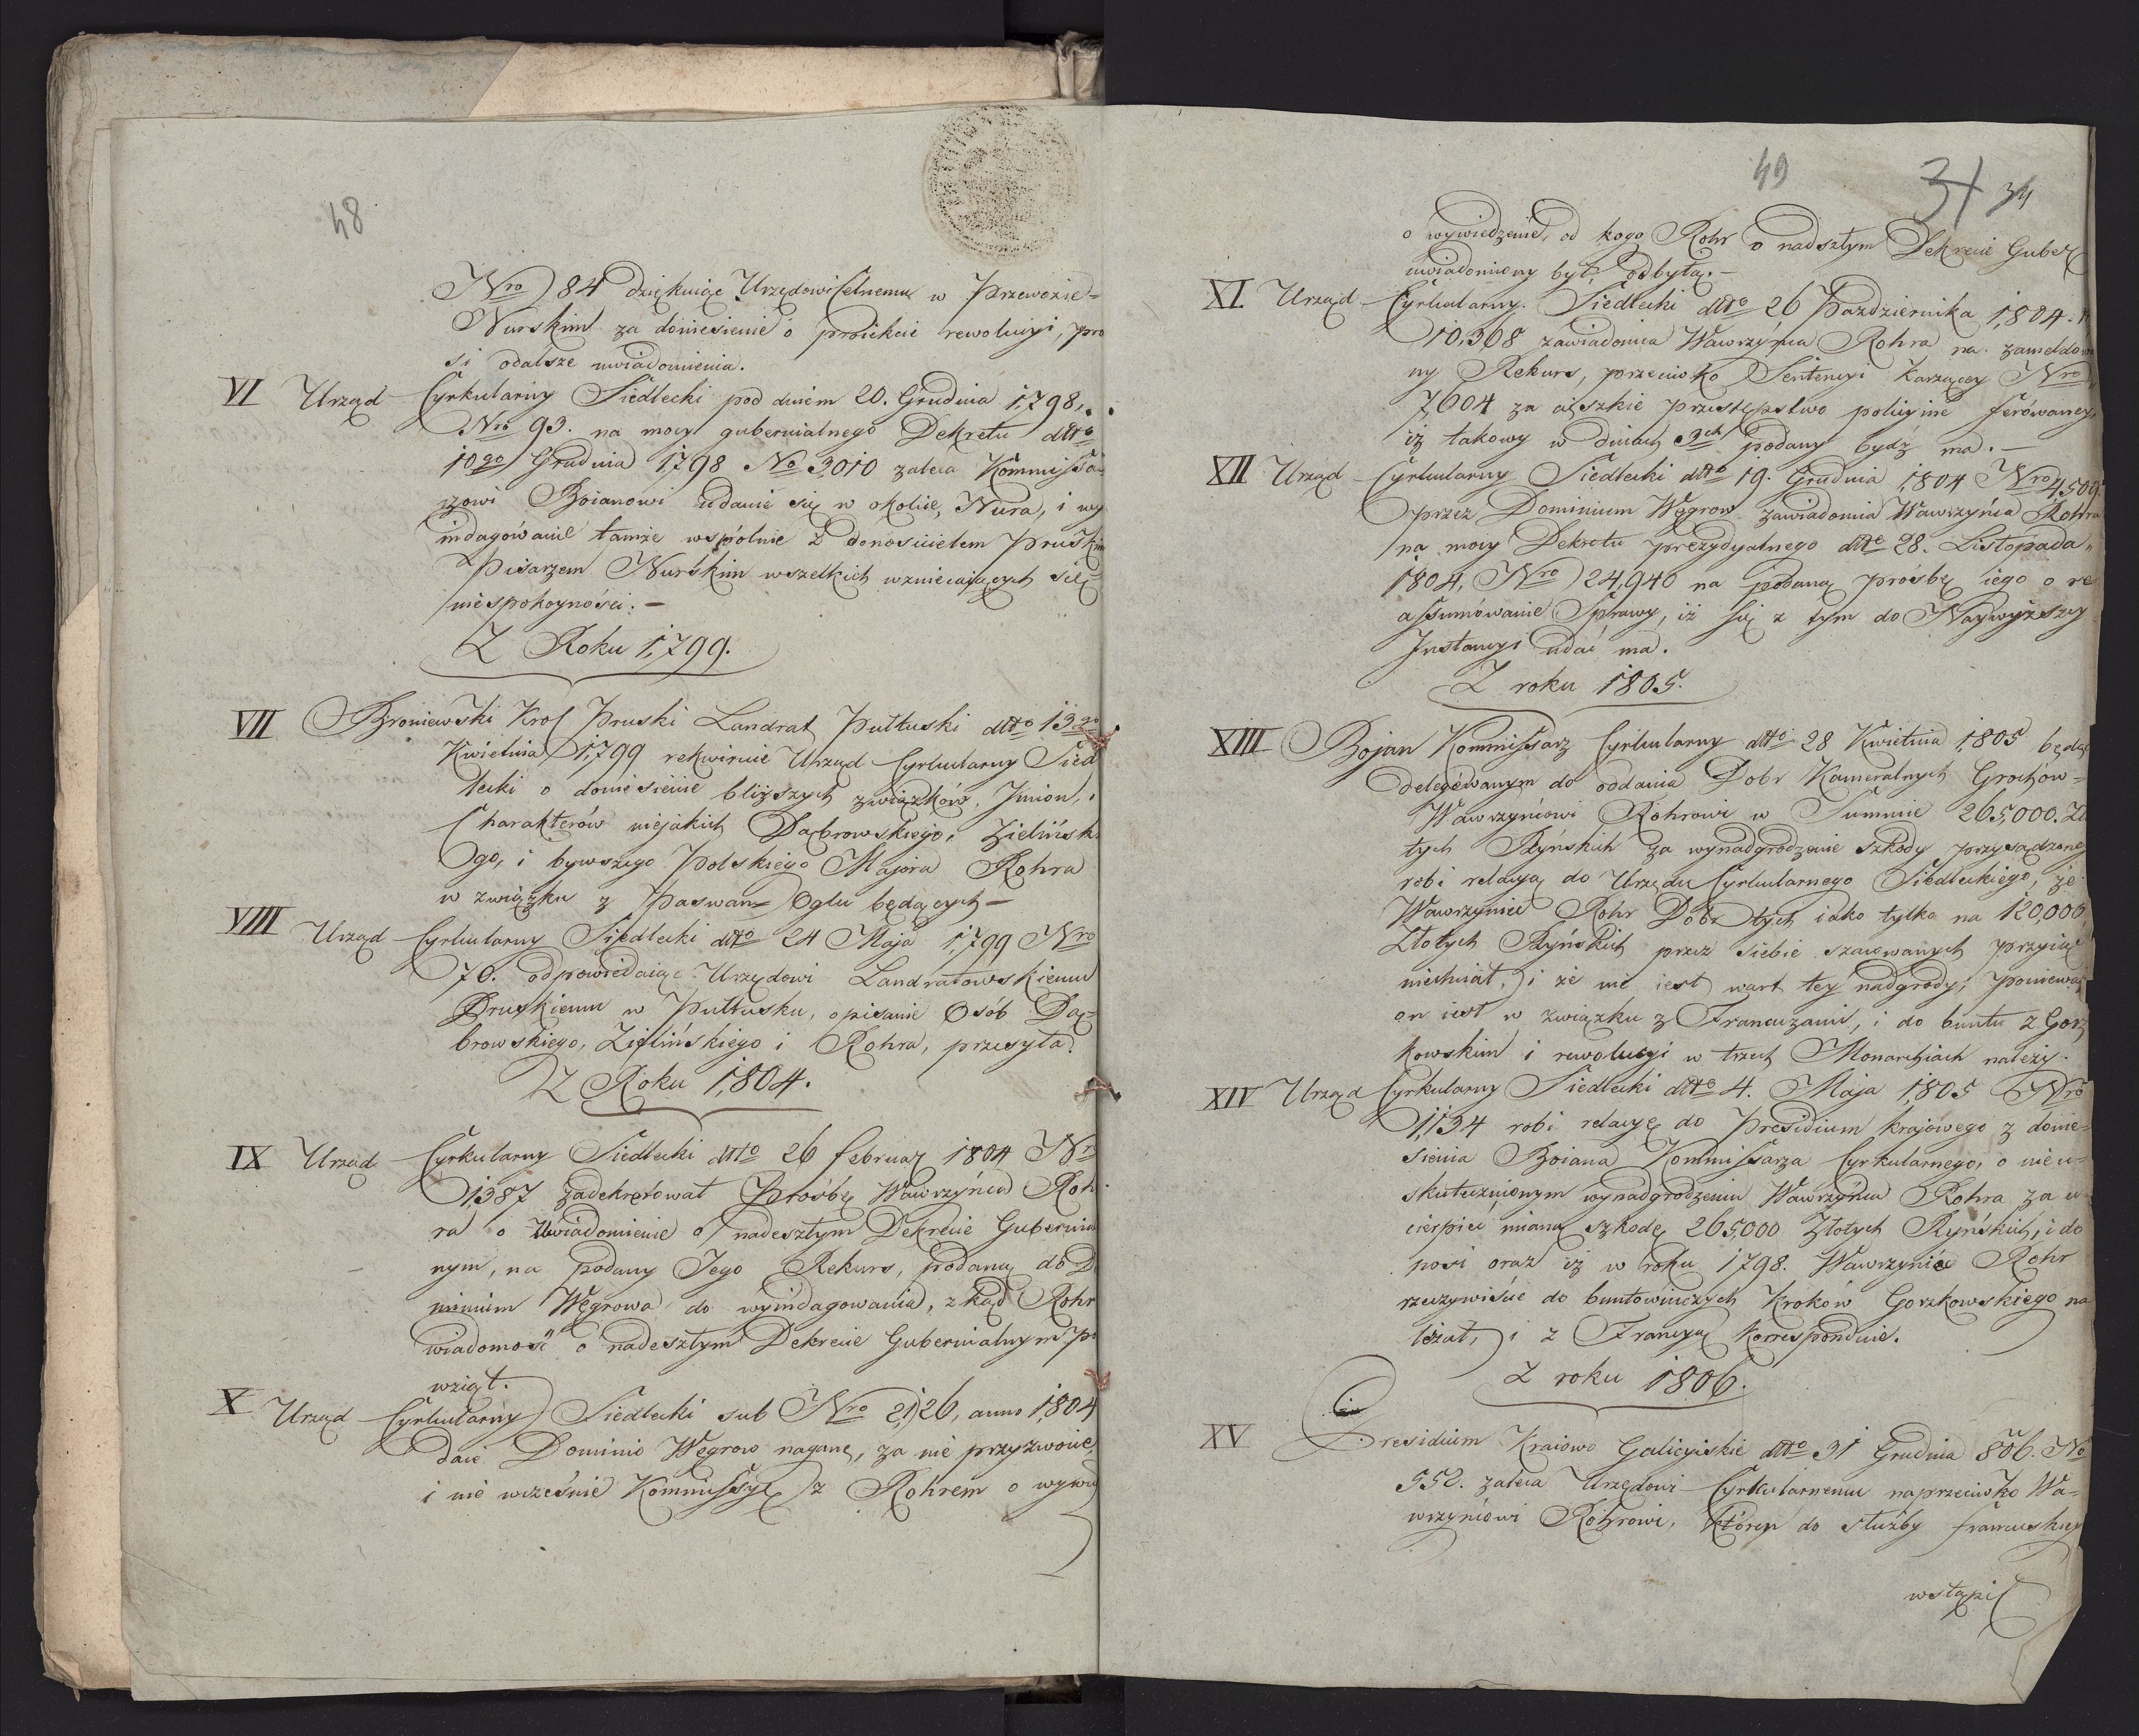 48
Nro 84 dziękuiąc Urzędowi Celnemu w Przewozie=
Nurskim za doniesienie o proiekcie rewolucyi, pro
si odalsze uwiadomienia.
VI Urząd Cyrkularny Siedlecki pod dniem 20. Grudnia 1,798,.
Nro 93. na mocy gubernialnego Dekretu dtto
10go Grudnia 1798 No 3010 zaleca Kommissa=
rzowi Boianowi udanie się w okolice Nura, i wy
indagówanie tamże wspólnie z donosicielem Pruskim
Pisarzem Nurskim wszelkich wzniecaiących się
niespokoyności. —
Z Roku 1,799.
VII Broniewski Krol Pruski Landrat Pułtuski dtto 13go
Kwietnia 1,799 rekwiruie Urząd Cyrkularny Sied
lecki o doniesienie bliższych związków, Jmion, .
Charakterów niejakich Dąbrowskiego, Zielińsk
ego, i bywszego Polskiego Majora Rohra
w związku z Paswan Oglu będących —
VIII Urząd Cyrkularny Siedlecki dtto 24 Maja 1,799 Nro
70. odpowiedaiąc Urzędowi Landratowskiemu
Pruskiemu w Pułtusku, opisanie Osób Dą=
browskiego, Zielińskiego i Rohra, przesyła.
Z Roku 1,804.
IX Urząd Cyrkularny Siedlecki dtto 26 februar 1804 Nr
1,387 zadekretował Prośbę Wawrzyńca Roh
ra o Uwiadomienie o nadesztym Dekrecie Gubernial
nym, na podany Jego Rekurs, podaną do D
minium Węgrowa do wyindagowania, zkąd Rohr
wiadomość o nadesztym Dekrecie Gubernialnym p
wziął.
X Urząd Cyrkularny Siedlecki sub Nro 2,126, anno 1,804
daie Dominio Węgrow naganę, za nie przyzwoicie,
i nie wcześnie Kommissyę z Rohrem o wywie
49 31 34
o wywiedzenie, od kogo Rohr o nadsztym Dekrecie Guber
uwiadomiony był odbytą. —
XI. Urząd Cyrkularny. Siedlecki dtto 26 Października 1,804.
10,368 zawiadomia Wawrzyńca Rohra na zameldowa
ny Rekurs, przeciwko Sentencyi Karzącey Nro
7,604 za cięszkie przestępstwo policyine ferówaney,
iż takowy w dniach 3ch podany bydź ma. —
XII Urząd Cyrkularny Siedlecki dtto 19. Grudnia 1,804 Nro 4,509.
przez Dominium Węgrow zawiadomia Wawrzyńca Rohra
na mocy Dekretu prezydyalnego dtto 28. Listopada
1804, Nro 24,940 na podaną prośbę iego o re
assumówanie Sprawy, iż się z tym do Naywyższy
Jnstancyi udać ma.
Z roku 1805.
XIII Bojan Kommissarz Cyrkularny dtto 28 Kwietnia 1,805 będąc
delegówanym do oddania Dobr Kameralnych Grochów=
Wawrzyńcowi Rohrowi w Summie 265,000. Zło
tych Ryńskich za wynadgrodzenie szkody przysądzoney
robi relacyą do Urzędu Cyrkularnego Siedleckiego, że
Wawrzyniec Rohr Dobr tych iako tylko na 120,000,
Złotych Ryńskich przez siebie szacowanych przyiąć
niechciał, i że nie iest wart tey nadgrody, ponieważ
on iest w związku z Francuzami, i do buntu z Gorz
kowskim i rewolucyi w trzech Monarchiach należy.
XIV Urząd Cyrkularny Siedlecki dtto 4. Maja 1,805 Nro
1,134 robi relacyę do Presidium krajowego z donie=
sienia Boiana Kommissarza Cyrkularnego, o nieu=
skutecznionym wynadgrodzeniu Wawrzyńca Rohra za u
cierpieć mianą szkodę 265,000 Złotych Ryńskich, i do
nosi oraz iż w roku 1798. Wawrzyniec Rohr
rzeczywiście do buntowniczych Kroków Gorzkowskiego na
leżał, i z Francyą Korresponduie.
Z roku 1806.
XV Presidium Kraiowe Galicyiskie dtto 31 Grudnia 806. No
552. zaleca Urzędowi Cyrkularnemu naprzeciwko Wa=
wrzyńcowi Rohrowi, któren do służby francuskiey
wstąpić